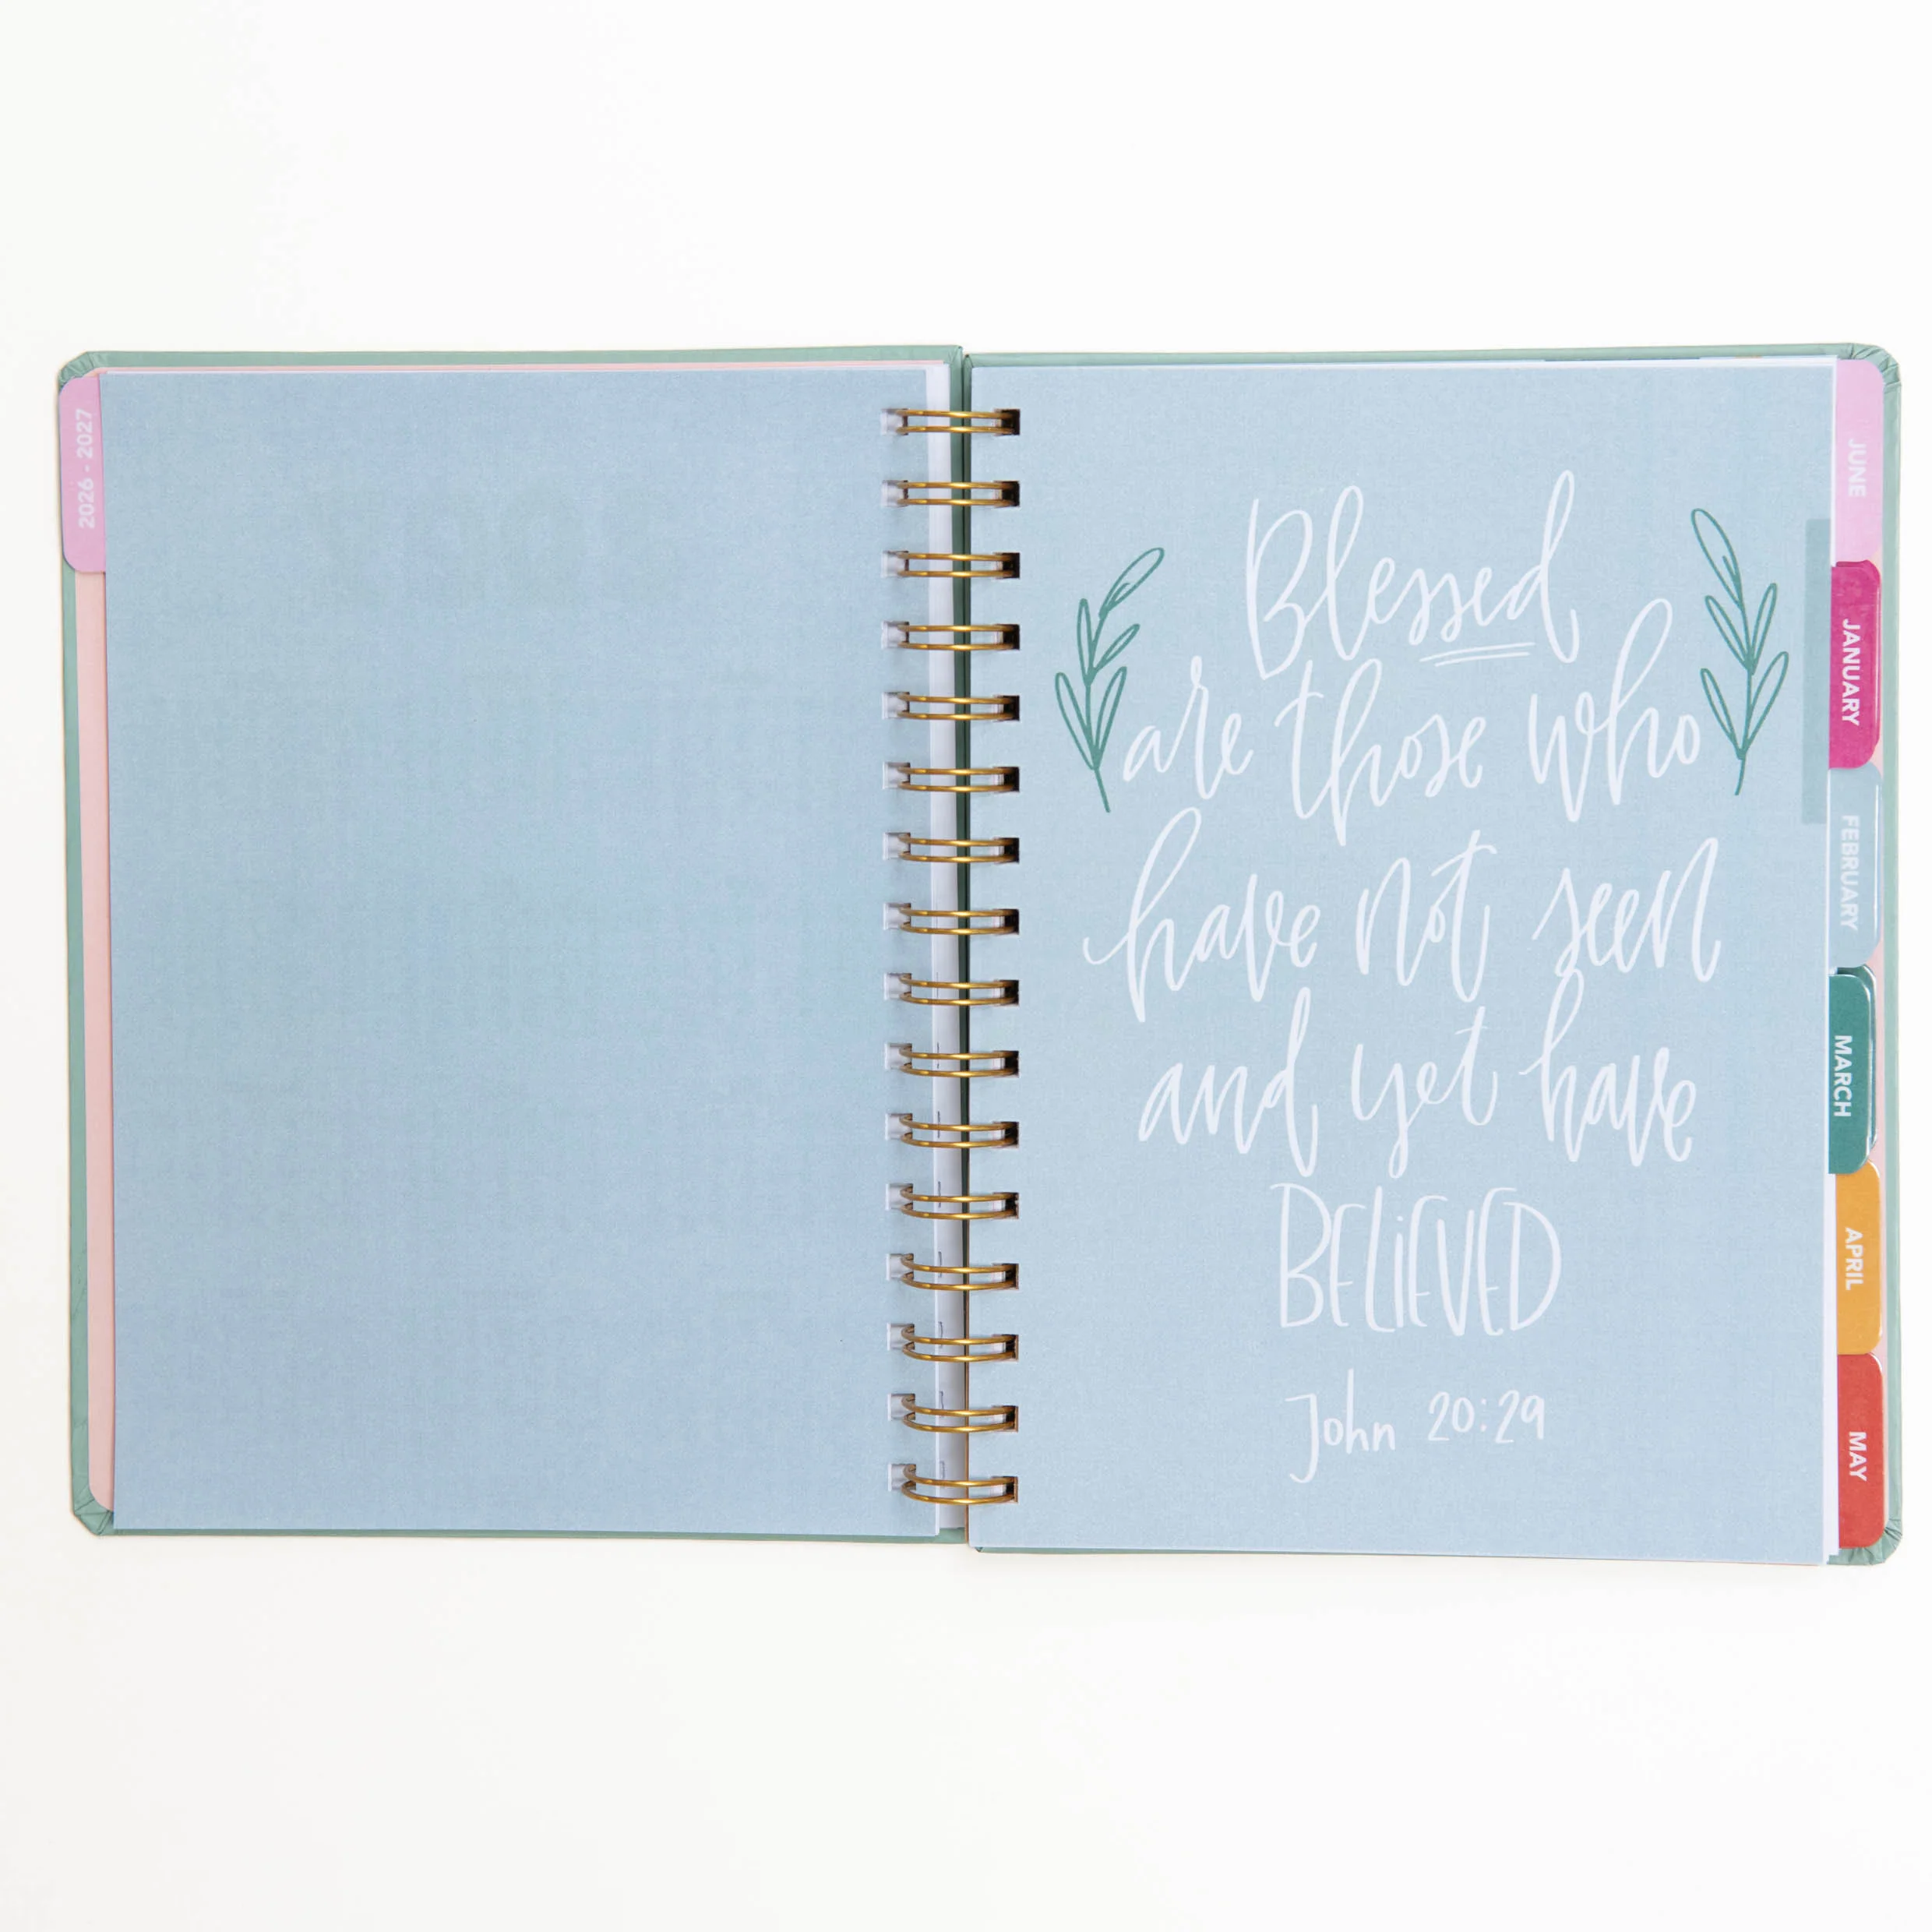 2026 - 2027
Blessed
are those who
have not seen
and yet have
BELiEVED
John 20:29
JUNE
JANUARY
FEBRUARY
MARCH
APRIL
MAY